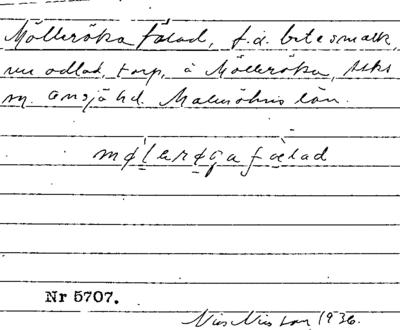 Mölleröka fälad, f.d. betesmark,
nu odlad, torp, å Mölleröka, Asks
sn. Onsjö hd. Malmöhus län.
mølarøgafælad
Nr 5707.
Nils Nilsson 1936.